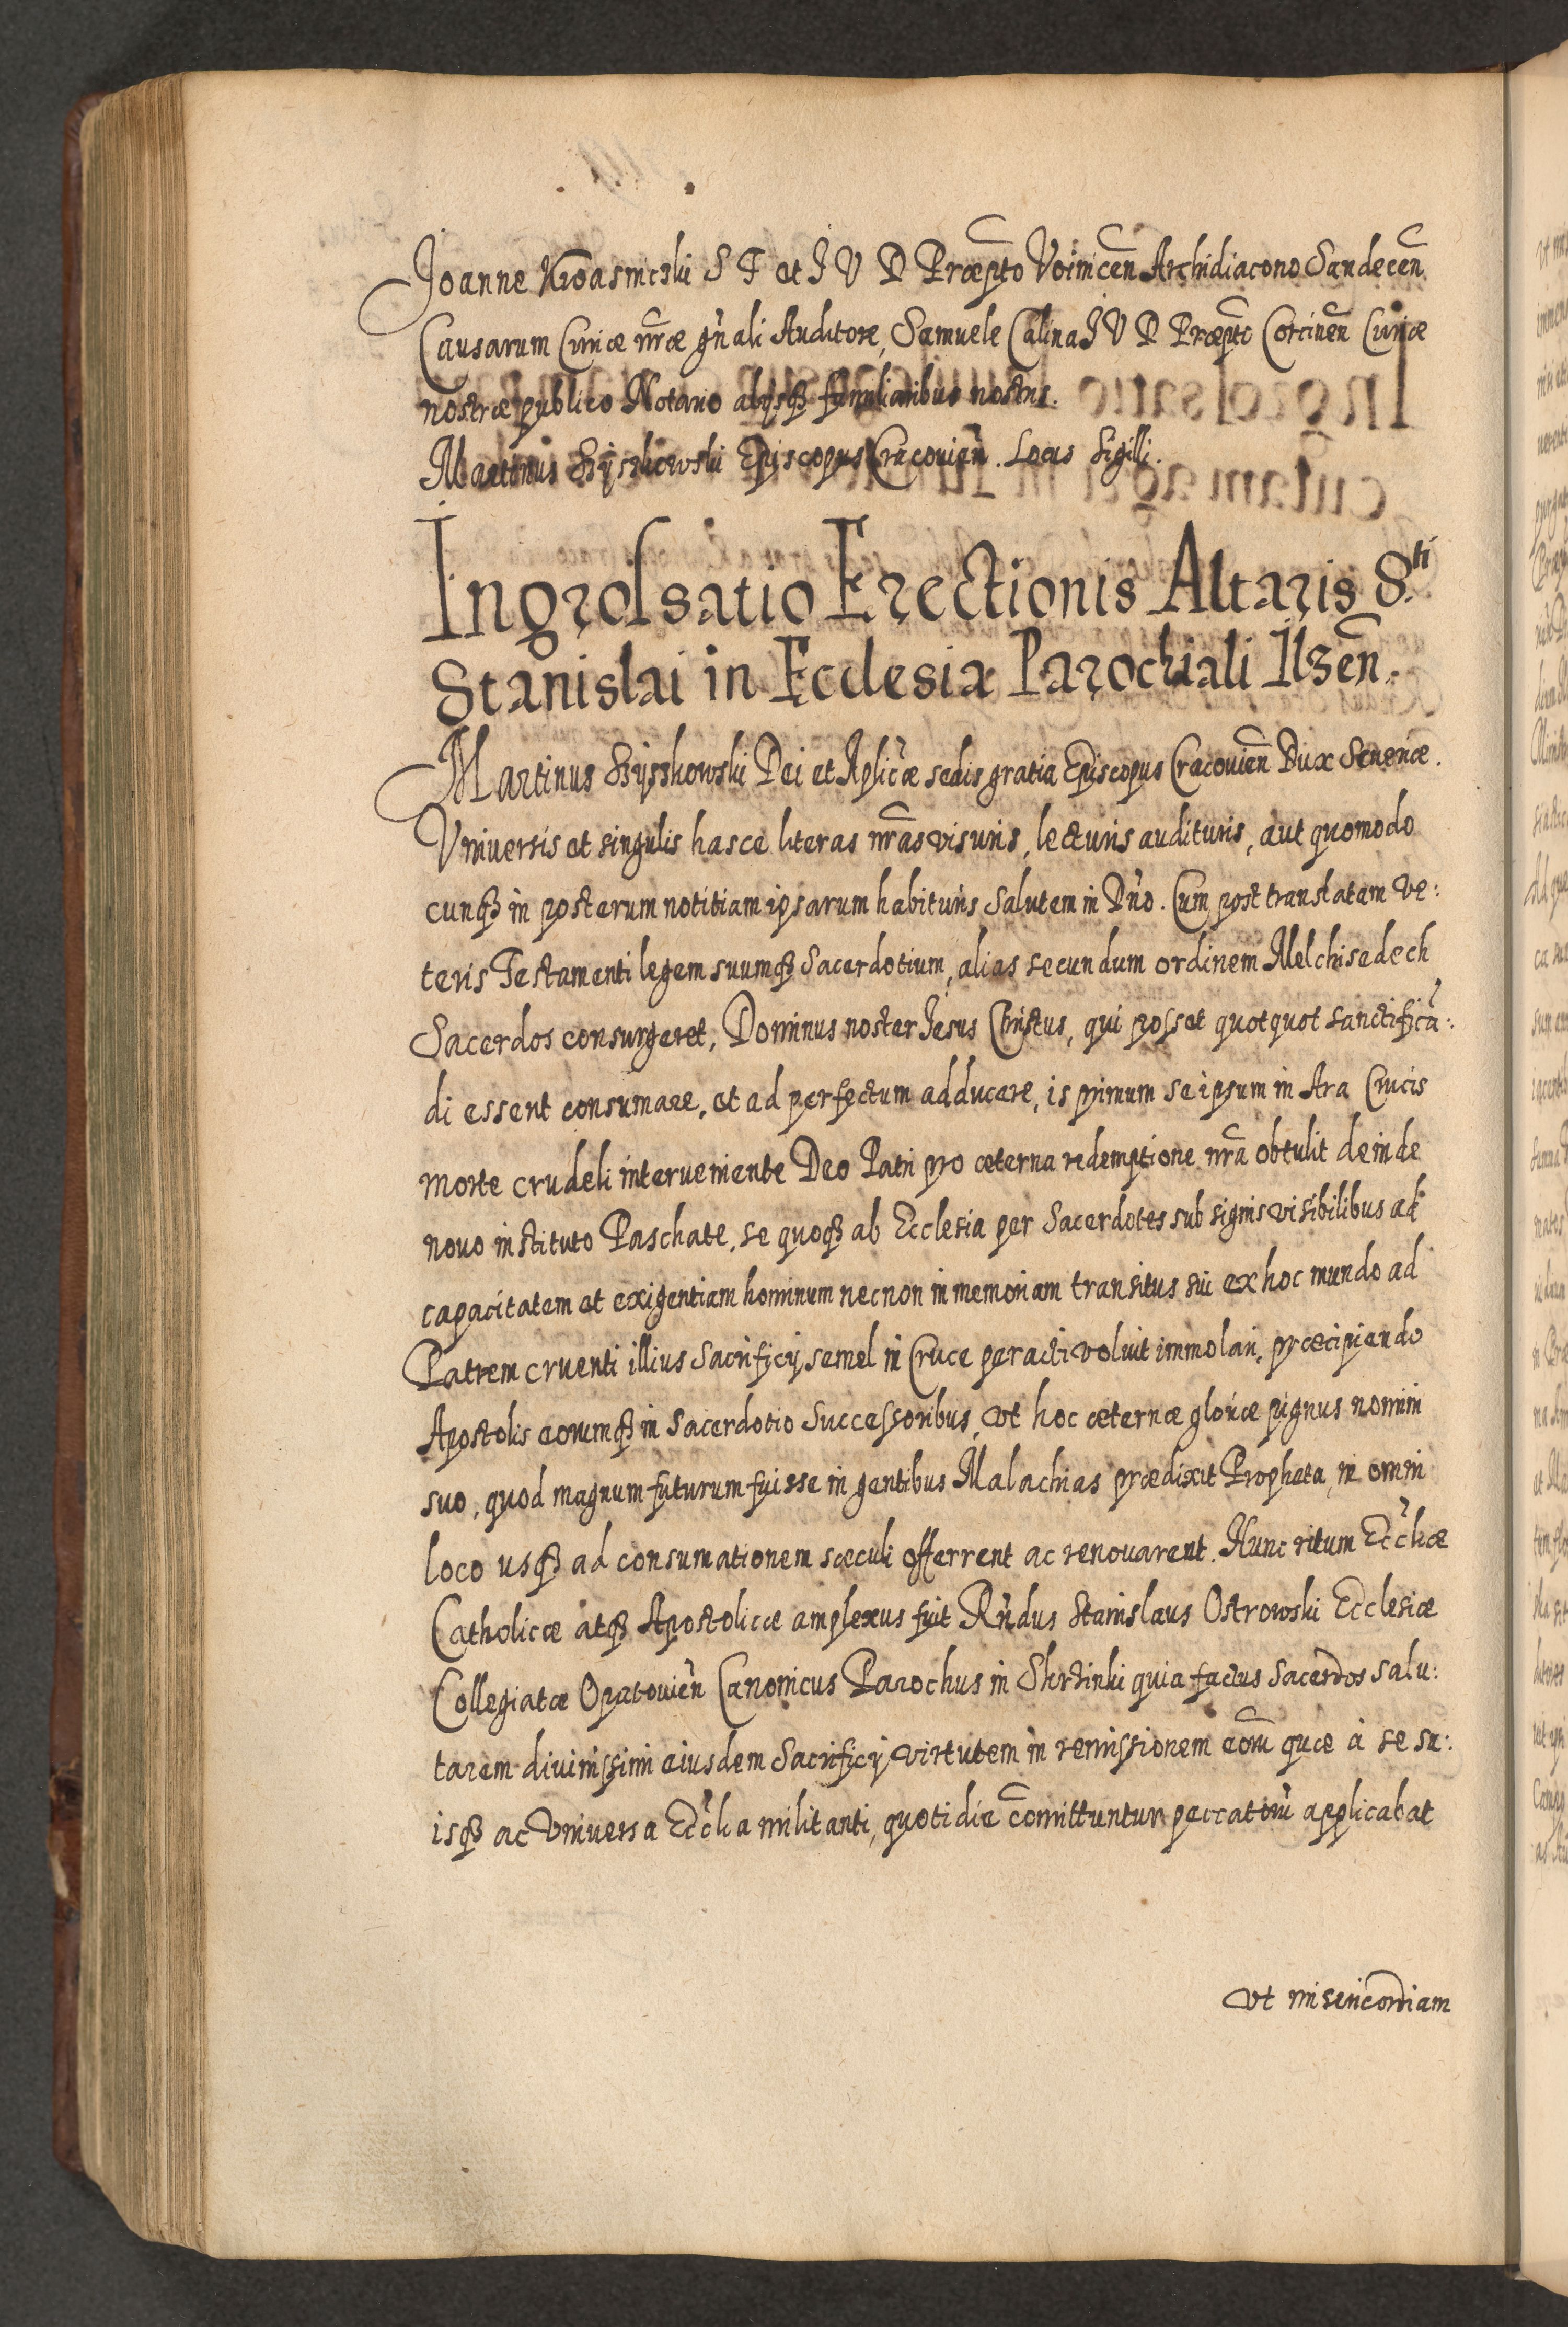 Joanne Kwasnieski S T et J V D Præpto Voinicen̄ Archidiacono Sandecen̄
Causarum Curiæ nr̄æ gn̄ali Auditore, Samuele Calina J V D Præpto Corcinen̄ Curiæ
nostræ publico Notario alijsq3 familiaribus nostris.
Martinus Szyszkowski Episcopus Cracouien̄. Locus Sigilli.
Ingrossatio Erectionis Altaris S.ti
Stanislai in Ecclesia Parochiali Ilzen̄.
Martinus Szyszkowski Dei et Aplicæ sedis gratia Episcopus Cracouien̄ Dux Seueriæ.
Vniuersis et singulis hasce literas nr̄as visuris, lecturis audituris, aut quomodo
cunq3 in posterum notitiam ipsarum habituris Salutem in Dn̄o. Cum post translatam ve:
teris Testamenti legem suumq3 Sacerdotium, alias secundum ordinem Melchisedech
Sacerdos consurgeret, Dominus noster Jesus Christus, qui posset quotquot sanctificā:
di essent consumare, et ad perfectum adducere, is primum seipsum in Ara Crucis
morte crudeli interueniente Deo Patri pro æterna redemptione nr̄a obtulit deinde
nouo instituto Paschate, se quoq3 ab Ecclesia per Sacerdotes sub signis visibilibus ad
capacitatem et exigentiam hominum necnon in memoriam transitus sui ex hoc mundo ad
Patrem cruenti illius Sacrificij semel in Cruce peracti voluit immolari, præcipiendo
Apostolis eorumq3 in Sacerdotio Successoribus, vt hoc æternæ gloriæ pignus nomini
suo, quod magnum futurum fuisse in gentibus Malachias prædixit Propheta, in omni
loco usq3 ad consumationem sæculi offerrent ac renouarent. Hunc ritum Eccliæ
Catholicæ atq3 Apostolicæ amplexus fuit Rn̄dus Stanislaus Ostrowski Ecclesiæ
Collegiatæ Opatouien̄ Canonicus Parochus in Skrzinki quia factus Sacerdos salu:
tarem diuinissimi eiusdem Sacrificij virtutem in remissionem eorū quæ à se su:
isq3 ac Vniuersa Ecclia militanti, quotidie com̄ittuntur peccatorū applicabat
vt misericordiam